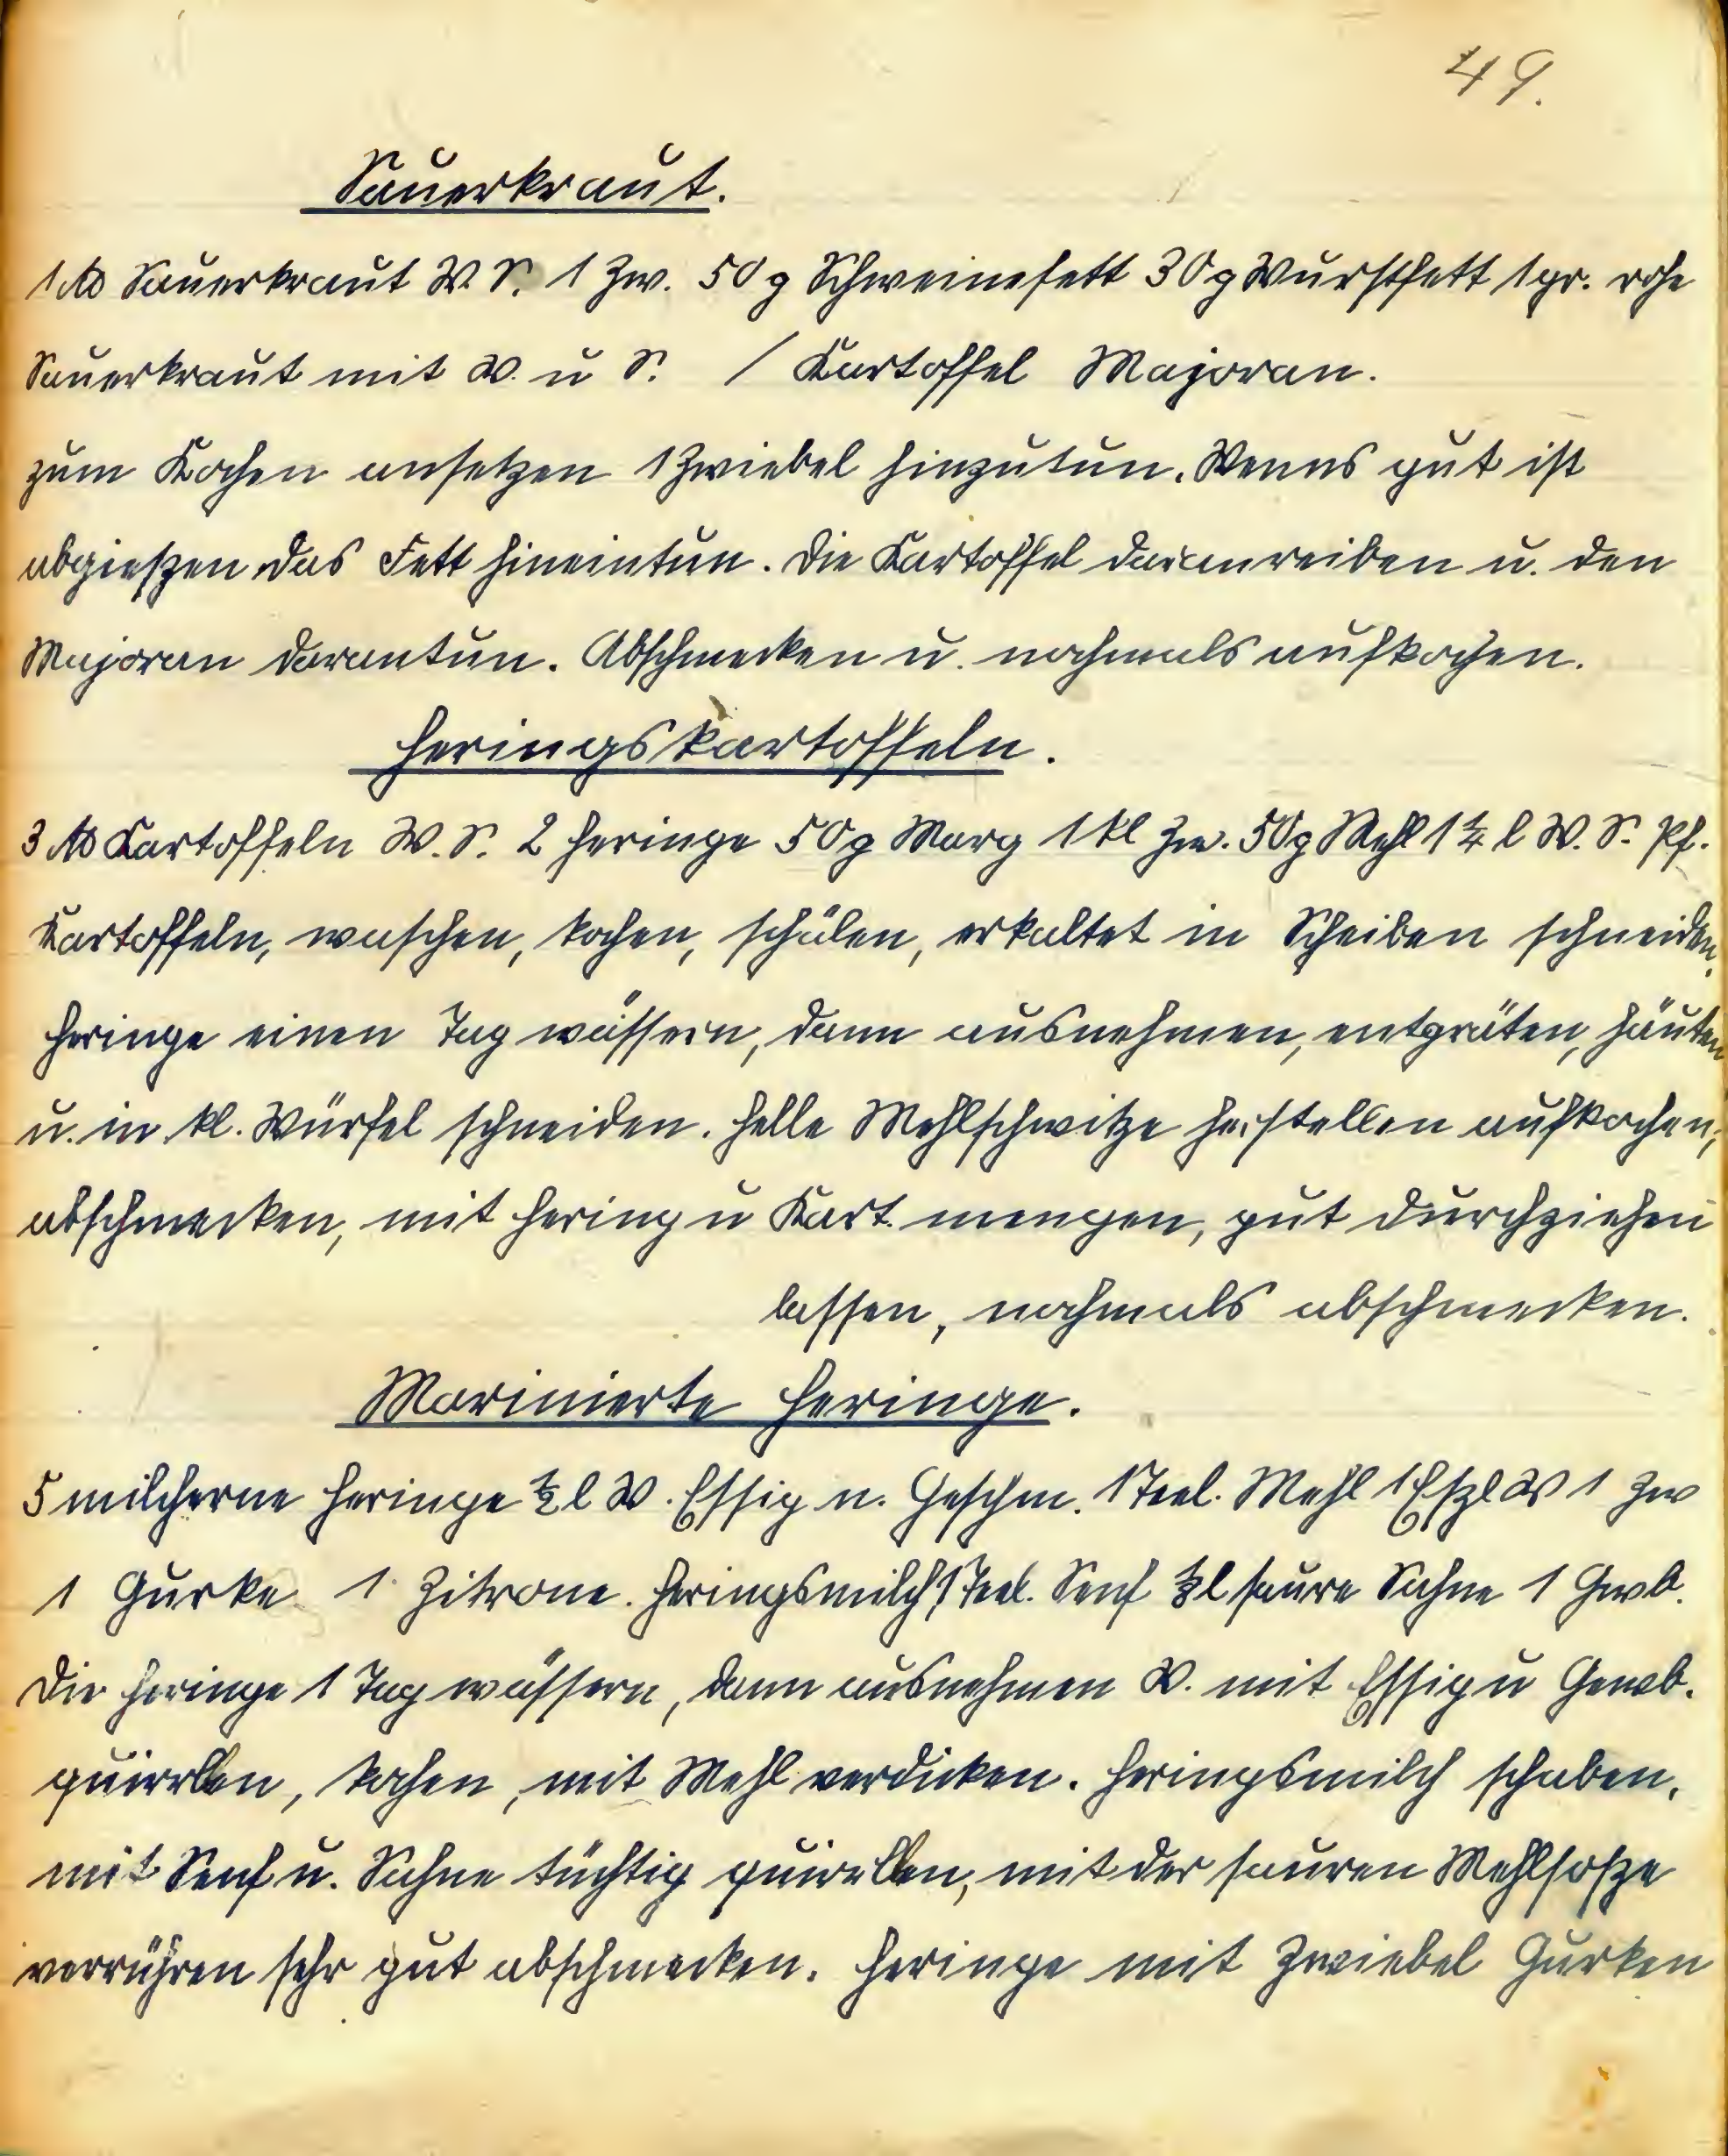 49.
Sauerkraut.
1 ℔ Sauerkraut W. S. 1 Zw. 50 g Schweinefett 30 g Wurstfett 1 gr. rohe
Sauerkraut mit W. u S. / Kartoffel Majoran.
zum Kochen ansetzen 1 Zwiebel hinzutun. Wenns gut ist
abgieszen das Fett hineintun. Die Kartoffel daranreiben u. den
Majoran darantun. Abschmecken u. nochmals aufkochen.
Heringskartoffeln.
3 ℔ Kartoffeln W. S. 2 Heringe 50 g Marg 1 kl Zw. 50 g Mehl 1 ¼ l W. S. Pf.
Kartoffeln, waschen, kochen, schälen, erkaltet in Scheiben schneiden.
Heringe einen Tag wässern, dann ausnehmen, entgräten, häuten
u. in kl. Würfel schneiden. Helle Mehlschwitze herstellen aufkochen,
abschmecken, mit Hering u Kart. mengen, gut durchziehen
lassen, nochmals abschmecken.
Marinierte Heringe.
5 milcherne Heringe ½ l W. Essig n. Geschm. 1 Teel. Mehl 1 Eszl W 1 Zw
1 Gurke 1 Zitrone. Heringsmilch 1 Teel. Senf ⅛ l saure Sahne 1 Gwb.
Die Heringe 1 Tag wässern, dann ausnehmen W. mit Essig u Gewb.
quirlen, kochen, mit Mehl verdicken. Heringsmilch schaben,
mit Senf u. Sahne tüchtig quirlen, mit der sauren Mehlsosze
verrühren sehr gut abschmecken. Heringe mit Zwiebel Gurken